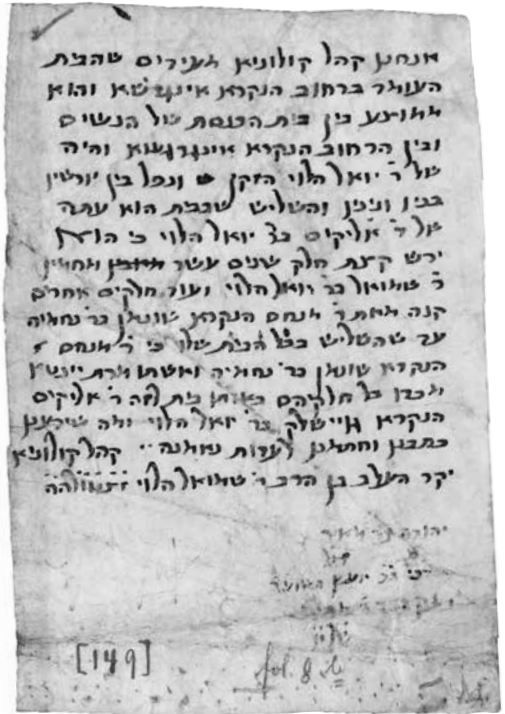 אנחנו קהל קולוניא מעידים שהבית
העומד ברחוב הנקרא אינגדשא והוא
ממוצע בין בית הכנסת של הנשים
ובין הרחוב הנקרא אינגרגשא והיה
של ר' יואל הלוי הזקן ונפל בין יורשיו
בניו והשליש שבבית הוא עתה
של ר' אליקים בר' יואל הלוי כי הוא
ירש קצת חלק שנים עשר מאחיו
ר' שמואל בר' יואל הלוי ועוד חלקים אחרים
קנה מאת ר' מנחם הנקרא שונמן בר' נחמיה
עד שהשליש בכל הבית שלו כי ר' מנחם
הנקרא שונמן בר' נחמיה ואשתו מרת
מכרו כל חלקיהם באותו בית לזה ר' אליקים
הנקרא בר' יואל הלוי ומה שידענו
כתבנו וחתמנו לעדות נאמנה קהל קולוניא
יקר העלוב בן הרב ר' שמואל הלוי
יהודה בר' מאיר
[149]
fol. 8 b